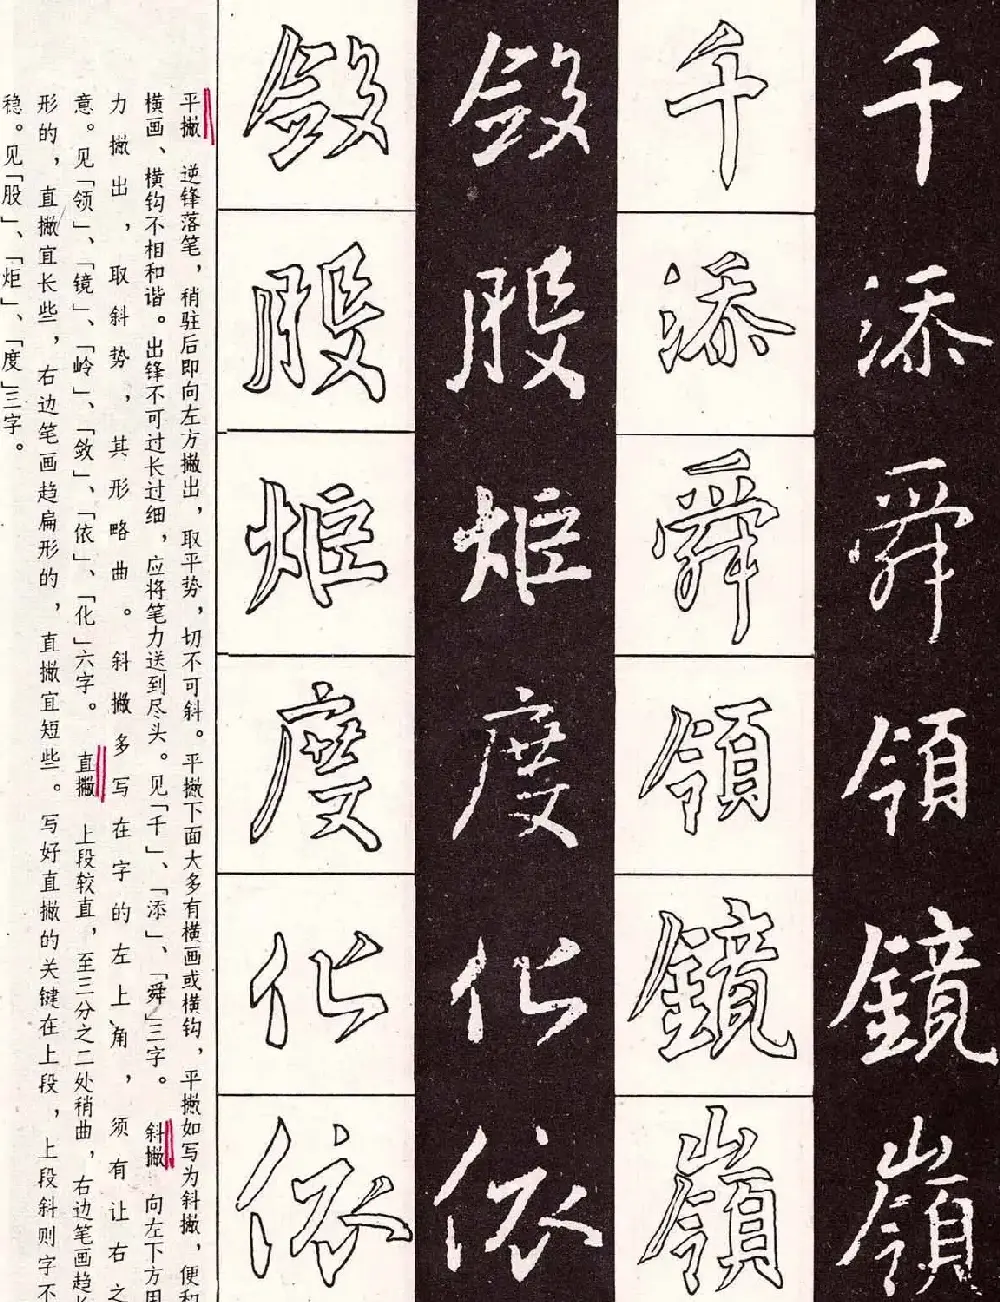 千添舜領鏡嶺
千添舜領鏡嶺
敛股炬度化依
敛股炬度化依
平撇 逆锋落笔，稍驻后即向左方撇出，取平势，切不可斜。平撇下面大多有横画或横钩，平撇如写为斜撇，便和
横画、横钩不相和谐。出锋不可过长过细，应将笔力送到尽头。见「千」、「添」、「舜」三字。 斜撇 向左下方用
力撇出，取斜势，其形略曲。斜撇多写在字的左上角，须有让右之
意。见「领」、「镜」、「岭」、「敛」、「依」、「化」六字。 直撇 上段较直，至三分之二处稍曲，右边笔画趋长
形的，直撇宜长些，右边笔画趋扁形的，直撇宜短些。写好直撇的关键在上段，上段斜则字不
稳。见「股」、「炬」、「度」三字。